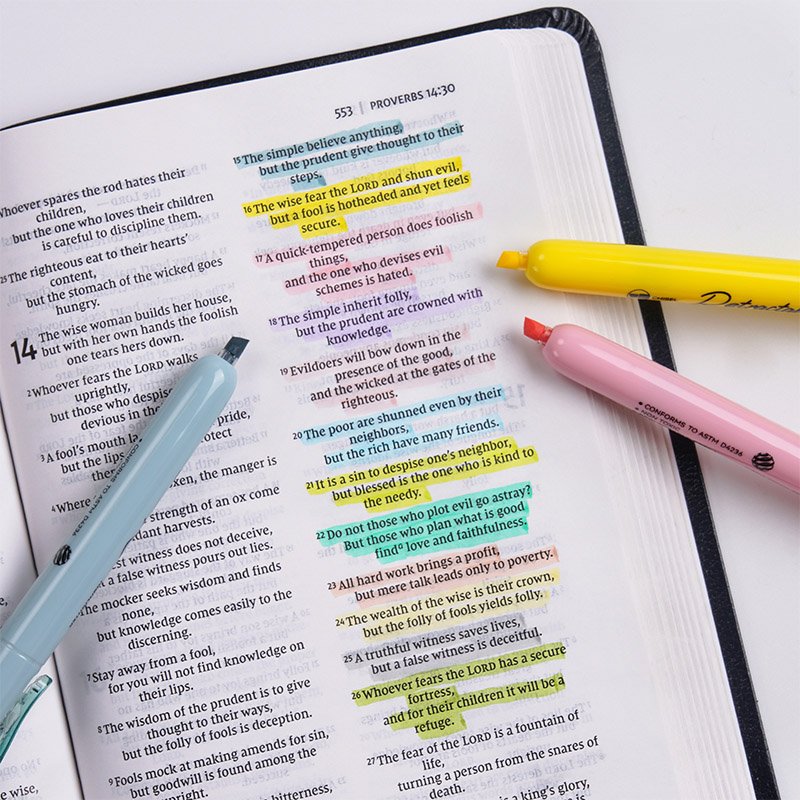 553 | PROVERBS 14:30
Whoever spares the rod hates their
children,
but the one who loves their children
is careful to discipline them.
25 The righteous eat to their hearts'
content,
but the stomach of the wicked goes
hungry.
14 The wise woman builds her house,
but with her own hands the foolish
one tears hers down.
2 Whoever fears the LORD walks
uprightly,
but those who despise
devious in the
3 A fool's mouth pride,
but the lips protect
4 Where oxen, the manger is
strength of an ox come
harvests.
witness does not deceive,
a false witness pours out lies.
The mocker seeks wisdom and finds
none,
but knowledge comes easily to the
discerning.
7 Stay away from a fool,
for you will not find knowledge on
their lips.
8 The wisdom of the prudent is to give
thought to their ways,
but the folly of fools is deception.
9 Fools mock at making amends for sin,
but goodwill is found among the
upright.
bitterness,
15 The simple believe anything,
but the prudent give thought to their
steps.
16 The wise fear the LORD and shun evil,
but a fool is hotheaded and yet feels
secure.
17 A quick-tempered person does foolish
things,
and the one who devises evil
schemes is hated.
18 The simple inherit folly,
but the prudent are crowned with
knowledge.
19 Evildoers will bow down in the
presence of the good,
and the wicked at the gates of the
righteous.
20 The poor are shunned even by their
neighbors,
but the rich have many friends.
21 It is a sin to despise one's neighbor,
but blessed is the one who is kind to
the needy.
22 Do not those who plot evil go astray?
But those who plan what is good
find a love and faithfulness.
23 All hard work brings a profit,
but mere talk leads only to poverty.
24 The wealth of the wise is their crown,
but the folly of fools yields folly.
25 A truthful witness saves lives,
but a false witness is deceitful.
26 Whoever fears the LORD has a secure
fortress,
and for their children it will be a
refuge.
27 The fear of the LORD is a fountain of
life,
turning a person from the snares of
death.
is a king's glory,
CONFORMS TO ASTM D4236
NON TOXIC
CONFORMS TO ASTM D4236